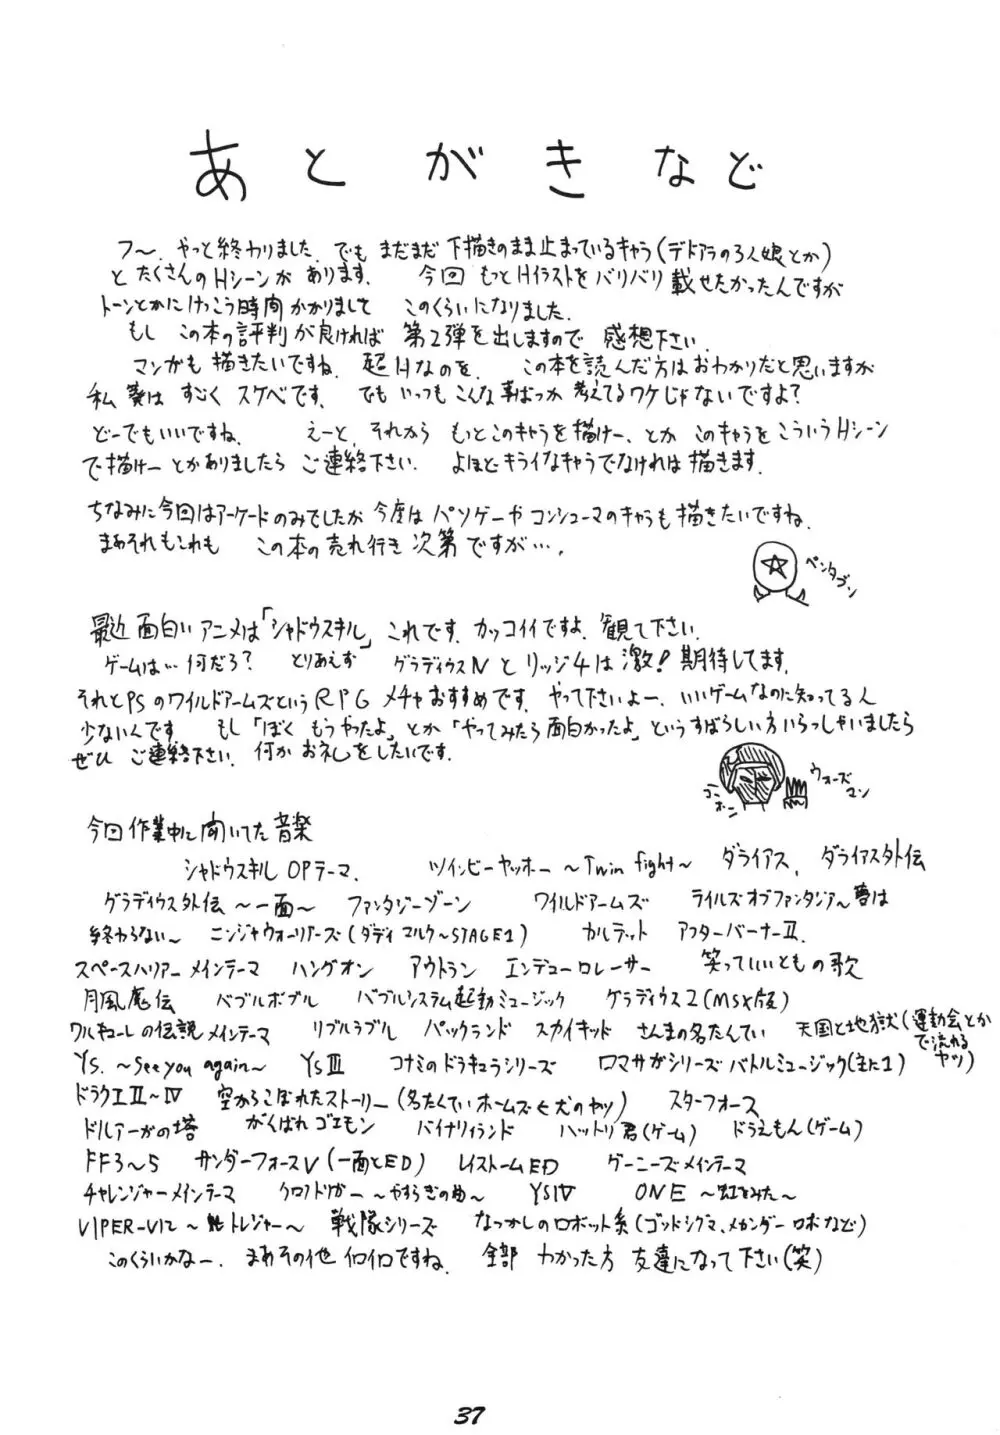 あとがきなど
フ〜、やっと終わりました。でも まだまだ 下描きのまま止まっているキャラ(デドアラの3人娘とか)
と たくさんのHシーンが あります。 今回 もっとHイラストを バリバリ 載せたかったんですが
トーンとかに けっこう時間 かかりまして このくらいになりました。
もし この本の評判が良ければ 第2弾を出しますので 感想下さい。
マンガも 描きたいですね。超Hなのを。 この本を読んだ方はおわかりだと思いますが
私 はすごく スケベです。 でも いっつも こんな事ばっか 考えてるワケじゃないですよ?
どーでもいいですね。 えーと、それから もっとこのキャラを描けー、とか このキャラを こういうHシーン
で描けー とかありましたら ご連絡下さい。 よほどキライなキャラでなければ 描きます。
ちなみに今回はアーケードのみでしたが 今度は パソゲーや コンシューマのキャラも 描きたいですね。
まあそれもこれも この本の売れ行き 次第ですが…。
ペンタゴン
最近 面白い アニメは「シャドウスキル」 これです。カッコイイですよ。観て下さい。
ゲームは…何だろ? とりあえず グラディウスⅣ と リッジ4は 激!期待してます。
それとPSのワイルドアームズという RPG メチャおすすめです。やって下さいよー、いいゲームなのに知ってる人
少ないんです。 もし「ぼく もうやったよ」とか「やってみたら面白かったよ」というすばらしい方 いらっしゃいましたら
ぜひ ご連絡下さい。何か お礼をしたいです。
コーホー
ウォーズマン
今回 作業中に聞いてた 音楽
シャドウスキル OPテーマ、 ツインビーヤッホー 〜Twin fight〜 ダライアス、 ダライアス外伝
グラディウス外伝 〜一面〜 ファンタジーゾーン ワイルドアームズ テイルズオブファンタジア〜夢は
終わらない〜 ニンジャウォーリアーズ(ダディ マルク〜STAGE1) カルテット アフターバーナーⅡ、
スペースハリアー メインテーマ ハングオン アウトラン エンデューロレーサー 笑っていいともの歌
月風魔伝 バブルボブル バブルシステム起動ミュージック グラディウス2(MSX版)
ワルキューレの伝説 メインテーマ リブルラブル パックランド スカイキッド さんまの名たんてい 天国と地獄(運動会とか
で流れる
ヤツ)
Ys. 〜See you again〜 YsⅢ コナミのドラキュラシリーズ ロマサガシリーズ バトルミュージック(主に1)
ドラクエⅡ〜Ⅳ 空からこぼれたストーリー(名たんていホームズ 犬のヤツ) スターフォース
ドルアーガの塔 がんばれゴエモン バイナリィランド ハットリ君(ゲーム) ドラえもん(ゲーム)
FF3〜5 サンダーフォースⅤ(一面とED) レイストームED グーニーズメインテーマ
チャレンジャーメインテーマ クロノトリガー 〜やすらぎの 〜 YSⅣ ONE 〜虹をみた〜
VIPER-V12 〜 トレジャー〜 戦隊シリーズ なつかしのロボット系(ゴッドシグマ、メカンダーロボなど)
このくらいかなー。 まあその他 イロイロですね。 全部 わかった方 友達になって下さい(笑)
37